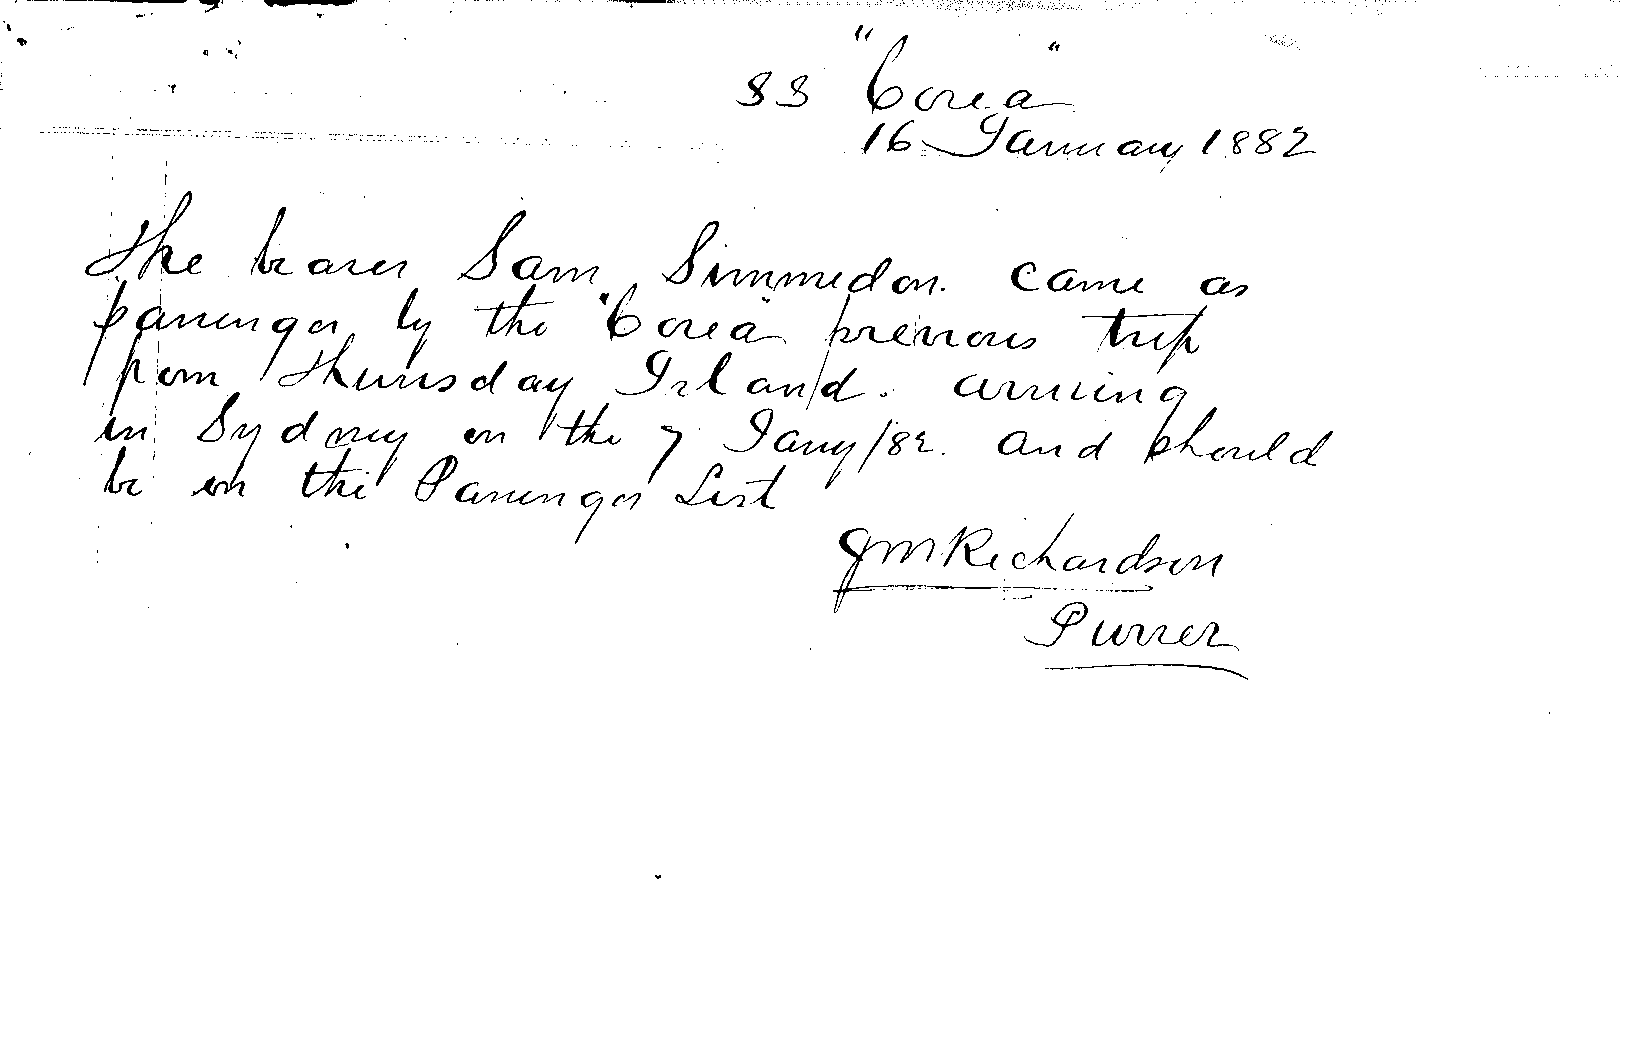 SS "Corea"
16 January 1882
The bearer Sam Simmedon. came as
passenger by the "Corea" previous trip
from Thursday Island. arriving
in Sydney on the 7 Jany/82. and should
be on the Passenger List
JMRichardson
Purser